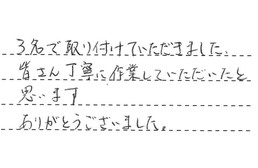 3名で取り付けていただきました、
皆さん丁寧に作業していただいたと
思います
ありがとうございました。